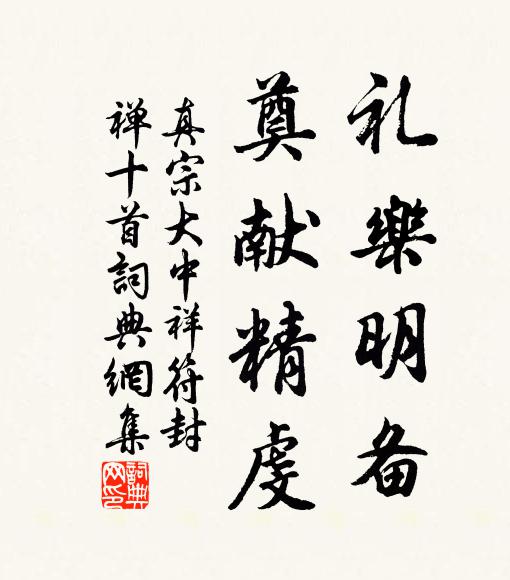 礼樂明备
奠献精虔
真宗大中祥符封
禅十首詞典網集
詞典网印